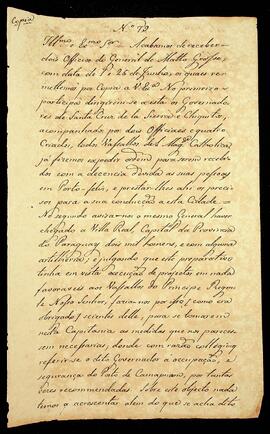 Copia
N.º 79
Illmo e Exmo Snr Acabamos de receber
dois Officios do General de Matto Grosso,
com data de 1º e 25 de Junho, os quaes re-
mettemos por Copia a V. Exa No primeiro
participa dirigirem se a esta os Governado-
res de Santa Cruz de la Sierra e Chiquitos,
acompanhado por dois Officiaes e quatro
Criados, todos Vassallos de S. Mage Catholica;
já fizemos expedir ordem para serem recebi-
dos com a decencia devida as suas pessoas
em Porto-feliz, e prestar lhes ahi os precisos
para a sua conducção a esta Cidade =
No segundo avizar-nos o mesmo General haver
chegado a Villa Real, Capital da Provincia
do Paraguay dois mil homens, e com alguma
artilheria; e julgando que este preparativo
tinha em vista execução de projectos em nada
favoraveis aos Vassallos do Principe Regen
te Nosso Senhor, fazia-nos por isso / como era
obrigado / scientes delle, para se tomarem
nesta Capitania as medidas que nos pareces
sem necessarias, donde com razão
referir-se o dito Governador a occupação, e
segurança do Pato de Camapuam, por tantas
vezes recommendadas. Sobre este objecto nada
temos a acrescentar alem do que se acha dito